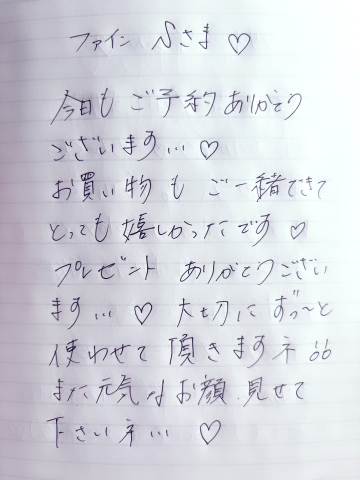 ファイン Sさま ♡
今日も ご予約 ありがとう
ございます… ♡
お買い物も ご一緒できて
とっても 嬉しかったです ♡
プレゼント ありがとうござい
ます… ♡ 大切に ずっ〜と
使わせて 頂きますネ
また元気なお顔 見せて
下さいネ… ♡